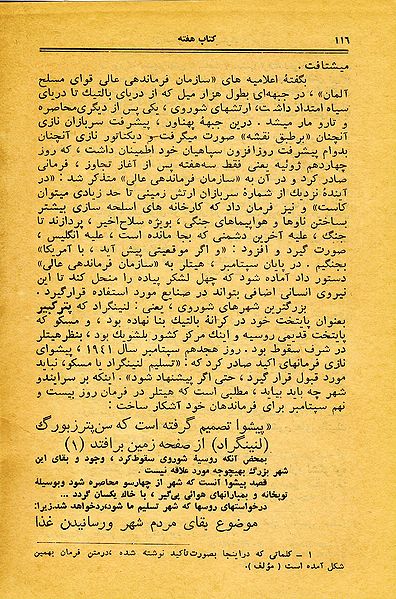 ۱۱۶ کتاب هفته
میشتافت .
بگفتهٔ اعلامیه های «سازمان فرماندهی عالی قوای مسلح
آلمان» ، در جبهه‌ای بطول هزار میل که از دریای بالتیك تا دریای
سیاه امتداد داشت، ارتشهای شوروی ، یکی پس از دیگری‌محاصره
و تارو مار میشد . درین جبههٔ پهناور ، پیشرفت سربازان نازی
آنچنان «برطبق نقشه» صورت میگرفت‌و دیکتاتور نازی آنچنان
بدوام پیشرفت روزافزون سپاهیان خود اطمینان داشت ، که روز
چهاردهم ژوئیه یعنی فقط سه‌هفته پس از آغاز تجاوز ، فرمانی
صادر کرد و در آن به «سازمان فرماندهی عالی» متذکر شد : «در
آیندهٔ نزدیك از شمارهٔ سربازان ارتش زمینی تا حد زیادی میتوان
کاست» و نیز فرمان داد که کارخانه های اسلحه سازی بیشتر
بساختن ناوها و هواپیماهای جنگی ، بویژه سلاح‌اخیر ، پردازند تا
جنگ ، علیه آخرین دشمنی که بجا مانده است ، علیه انگلیس ،
صورت گیرد و افزود : «و اگر موقعیتی پیش آید ، با آمریکا»
بجنگیم . در پایان سپتامبر ، هیتلر به «سازمان فرماندهی عالی»
دستور داد آماده شود که چهل لشکر پیاده را منحل کند تا این
نیروی انسانی اضافی بتواند در صنایع مورد استفاده قرارگیرد.
بزرگترین شهرهای شوروی ، یعنی : لنینگراد که پترکبیر
بعنوان پایتخت خود در کرانهٔ بالتیك بنا نهاده بود ، و مسکو که
پایتخت قدیمی روسیه و اینك مرکز کشور بلشویك بود ، بنظرهیتلر
در شرف سقوط بود. روز هجدهم سپتامبر سال ۱۹۴۱ ، پیشوای
نازی فرمانهای اکید صادر کرد که : «تسلیم لنینگراد یا مسکو، نباید
مورد قبول قرار گیرد ، حتی اگر پیشنهاد شود» . اینکه بر سرایندو
شهر چه باید بیاید ، مطلبی است که هیتلر در فرمان روز بیست و
نهم سپتامبر برای فرماندهان خود آشکار ساخت :
«پیشوا تصمیم گرفته است که سن‌پترزبورگ
(لنینگراد) از صفحه زمین برافتد (۱)
بمحض آنکه روسیهٔ شوروی سقوط‌کرد ، وجود و بقای این
شهر بزرگ بهیچوجه مورد علاقه نیست .
قصد پیشوا آنست که شهر از چهارسو محاصره شود وبوسیلهٔ
توپخانه و بمبارانهای هوائی پی‌گیر ، با خاك یکسان گردد ...
درخواستهای روسها که شهر تسلیم ما شود،ردخواهد شد،زیرا:
موضوع بقای مردم شهر ورسانیدن غذا
۱ – کلماتی که دراینجا بصورت‌تأکید نوشته شده ،درمتن فرمان بهمین
شکل آمده است ( مؤلف ).